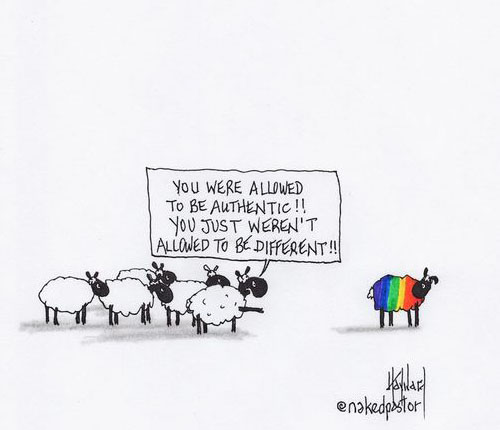 YOU WERE ALLOWED
TO BE AUTHENTIC!!
YOU JUST WEREN'T
ALLOWED TO BE DIFFERENT!!
Hayward
@nakedpastor